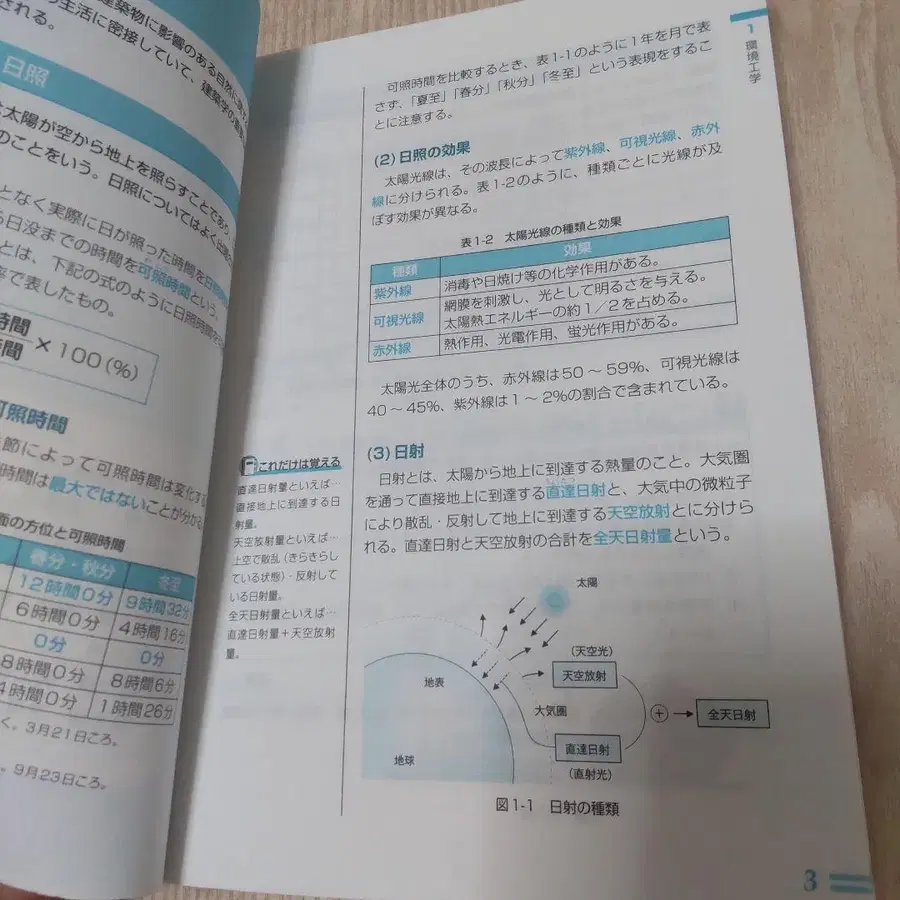 建築物に影響のある自然に
生活に密接していて、
される。
日照
太陽が空から地上を照らすことであり
のことをいう。日照については
となく実際に日が照った時間を
日没までの時間を可照時間という。
とは、下記の式のように日照時間を
で表したもの。
時間
間 × 100(%)
可照時間
節によって可照時間は変化する
時間は最大ではないことが分かる
面の方位と可照時間
春分・秋分 冬至
12時間0分 9時間32分
6時間0分 4時間16分
0分 0分
8時間0分 8時間6分
4時間0分 1時間26分
く。3月21日ころ。
9月23日ころ。
1 環境工学
可照時間を比較するとき、表1-1のように1年を月で表
さず、「夏至」「春分」「秋分」「冬至」という表現をするこ
とに注意する。
(2) 日照の効果
太陽光線は、その波長によって紫外線、可視光線、赤外
線に分けられる。表1-2のように、種類ごとに光線が及
ぼす効果が異なる。
表1-2 太陽光線の種類と効果
種類 効果
紫外線 消毒や日焼け等の化学作用がある。
可視光線 網膜を刺激し、光として明るさを与える。
太陽熱エネルギーの約1/2を占める。
赤外線 熱作用、光電作用、蛍光作用がある。
太陽光全体のうち、赤外線は50～59%、可視光線は
40～45%、紫外線は1～2%の割合で含まれている。
(3) 日射
日射とは、太陽から地上に到達する熱量のこと。大気圏
を通って直接地上に到達する直達日射と、大気中の微粒子
により散乱・反射して地上に到達する天空放射とに分けら
れる。直達日射と天空放射の合計を全天日射量という。
これだけは覚える
直達日射量といえば…
直接地上に到達する日
射量。
天空放射量といえば…
上空で散乱（きらきらし
ている状態）・反射して
いる日射量。
全天日射量といえば…
直達日射量＋天空放射
量。
太陽
(天空光)
天空放射
地表
大気圏
＋
全天日射
直達日射
(直射光)
地球
図1-1 日射の種類
3